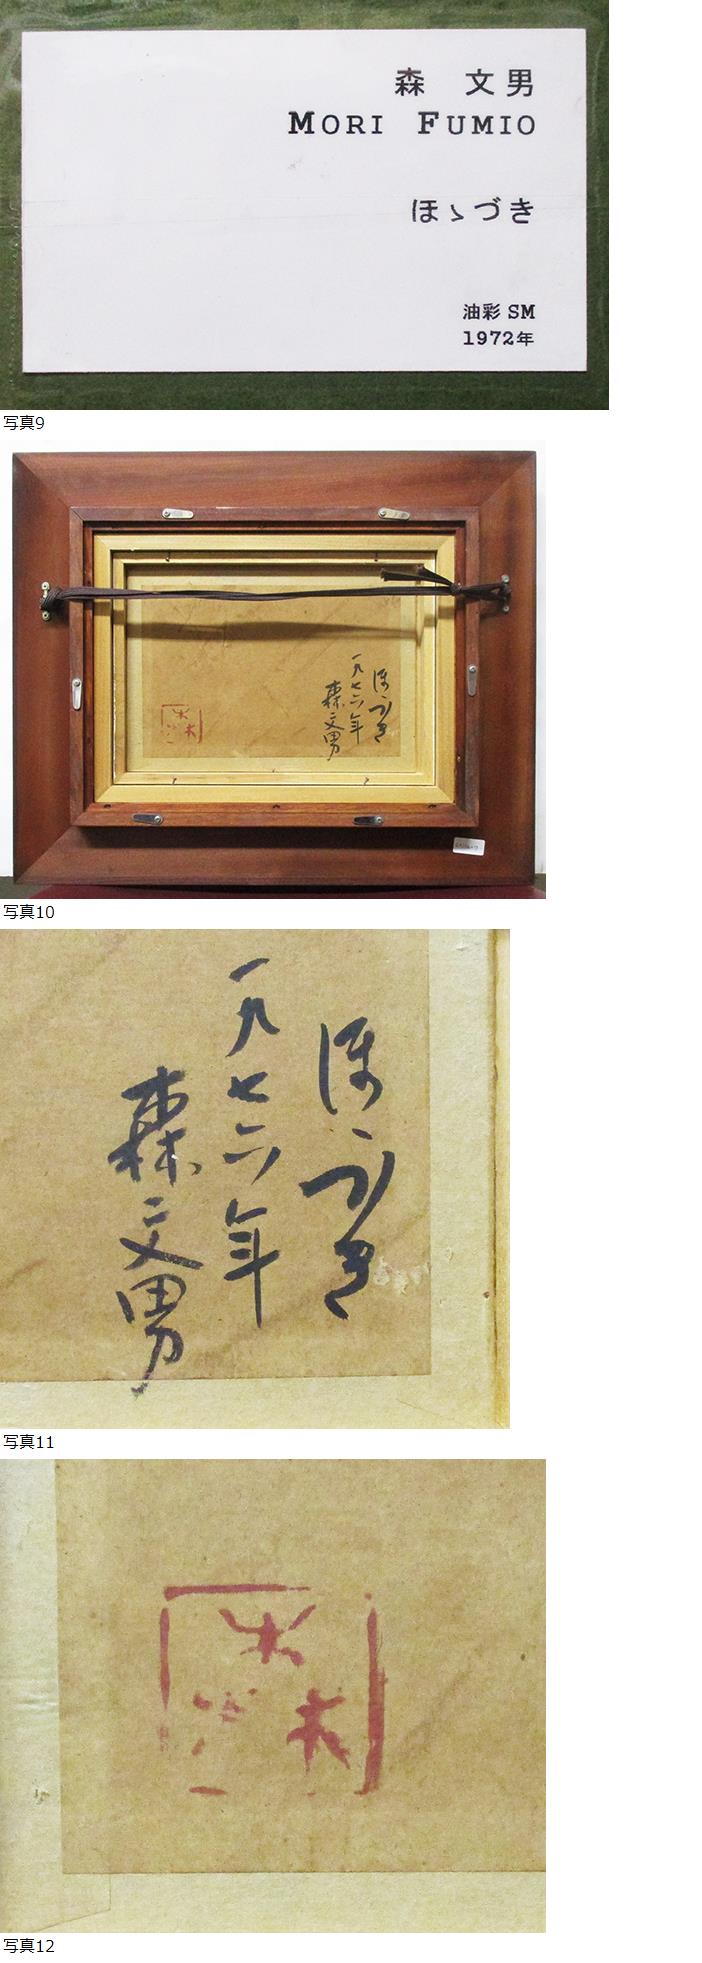 森 文男
MORI FUMIO
ほゝづき
油彩 SM
1972年
写真9
ほゝづき
一九七六年
森文男
写真10
ほゝづき
一九七六年
森文男
写真11
写真12